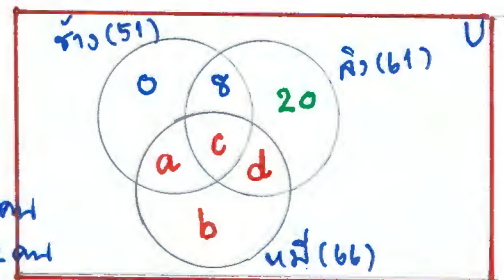 ช้าง (51)
U
ลิง (61)
0
8
20
a
c
d
คน
คน
b
หมี (66)